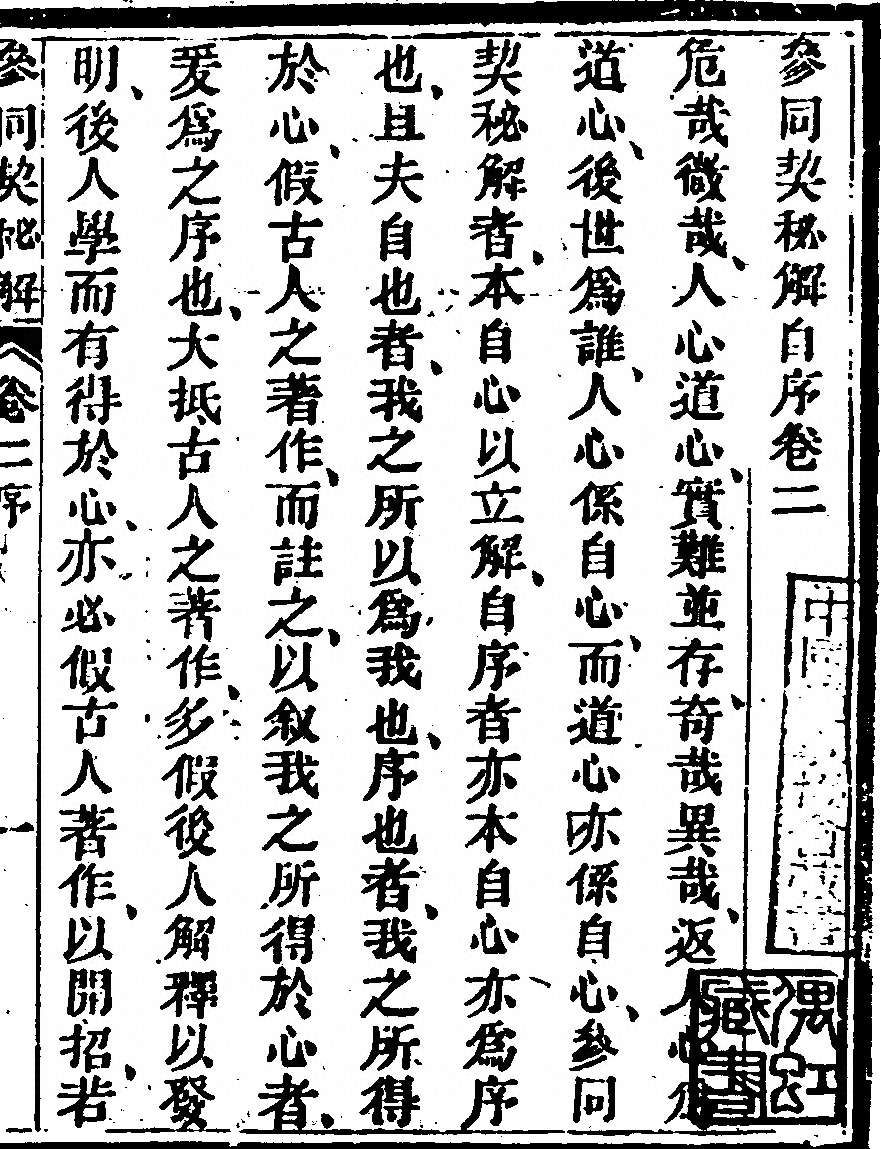 參同契秘解自序卷二
危哉微哉、人心道心、實難並存、奇哉異哉、返人心為
道心、後世為誰、人心係自心、而道心亦係自心、參同
契秘解者、本自心以立解、自序者亦本自心亦為序
也、且夫自也者、我之所以為我也、序也者、我之所得
於心、假古人之著作、而註之、以叙我之所得於心者、
爰為之序也、大抵古人之著作、多假後人解釋以發
明、後人學而有得於心、亦必假古人著作、以開招、若
參同契秘解 卷二序 一
藏書